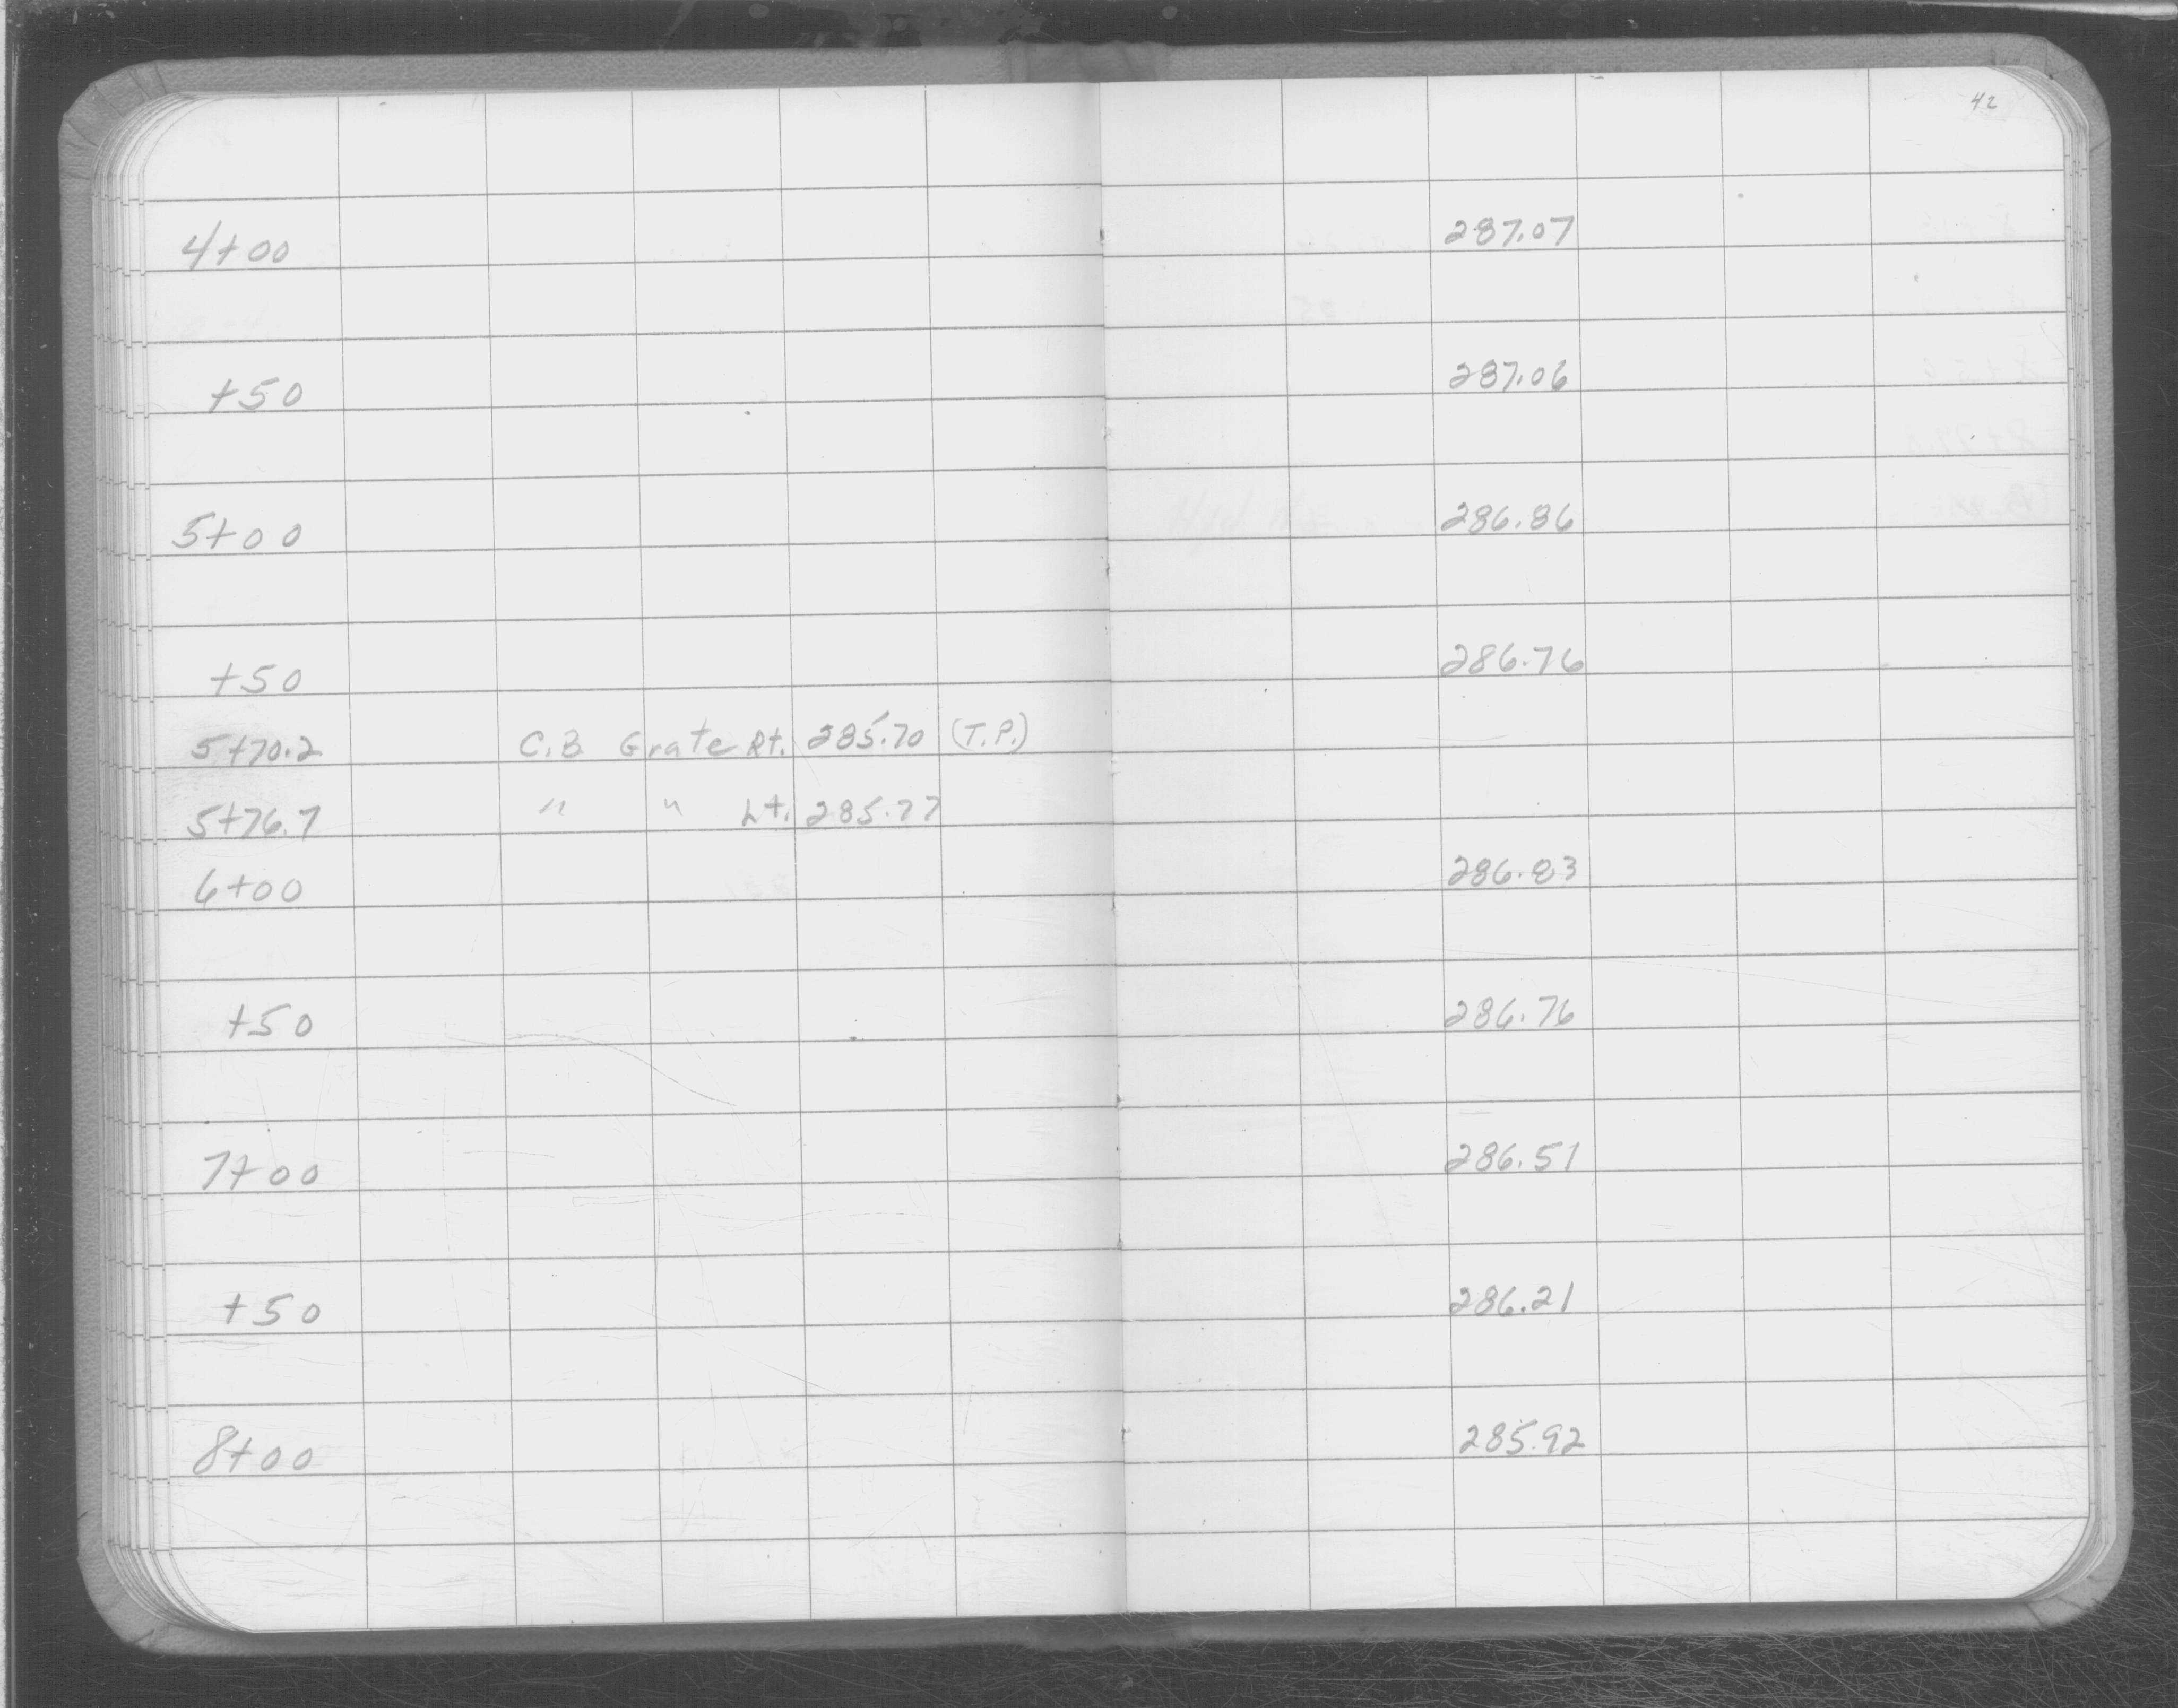 42
4+00 287.07
+50 287.06
5+00 286.86
+50 286.76
5+70.2 C.B. Grate Rt. 285.70 (T.P.)
5+76.7 " " Lt. 285.77
6+00 286.83
+50 286.76
7+00 286.51
+50 286.21
8+00 285.92